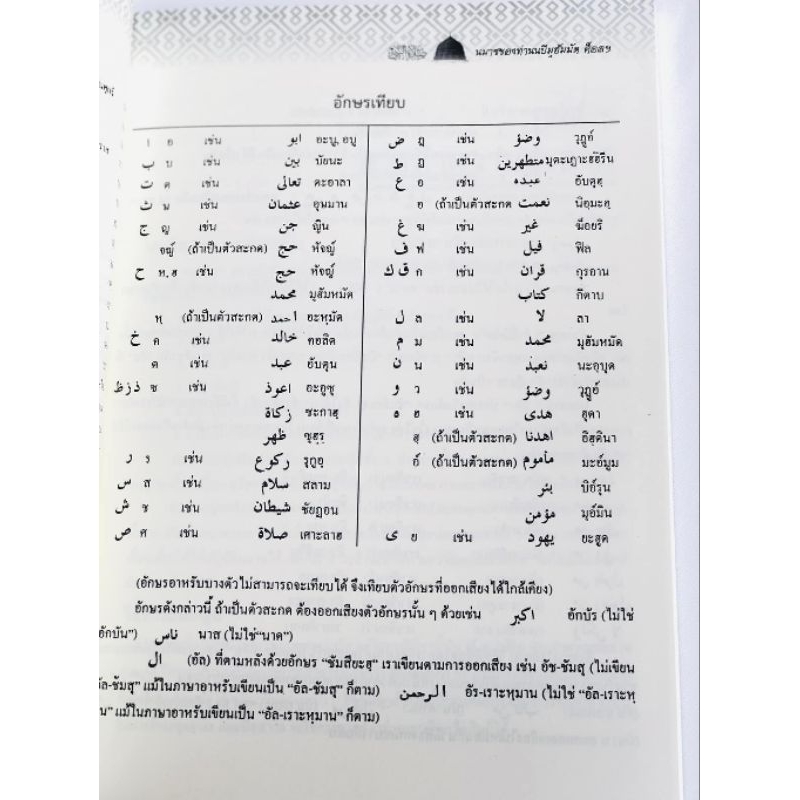 นมาซของท่านนบีมุฮัมมัด ศ็อลฯ
อักษรเทียบ
ا อ เช่น ابو อะบู, อบู
ب บ เช่น بين บัยนะ
ت ต เช่น تعالى ตะอาลา
ث ษ เช่น عثمان อุษมาน
ج ญ เช่น جن ญิน
จญ์ (ถ้าเป็นตัวสะกด) حج หัจญ์
ح ห,ฮ เช่น حج หัจญ์
محمد มุฮัมหมัด
หฺ (ถ้าเป็นตัวสะกด) احمد อะหฺมัด
خ ค เช่น خالد คอลิด
ด عبد อับดุน
ذزظ ซ เช่น اعوذ อะอูซุ
زكاة ซะกาฮฺ
ظهر ซุฮฺรฺ
ر ร เช่น ركوع รุกูอฺ
س ส เช่น سلام สลาม
ش ช เช่น شيطان ชัยฏอน
ص ศ เช่น صلاة เศาะลาฮ
ض ฎ เช่น وضؤ วุฎูอ์
ط ฏ เช่น متطهرين มุตะเฏาะฮ์ฮิรีน
ع อ เช่น عبده อับดุฮฺ
อ (ถ้าเป็นตัวสะกด) نعمت นิอฺมะฮฺ
غ ฆ เช่น غير ฆ็อยริ
ف ฟ เช่น فيل ฟิล
ق ك ก เช่น قران กุรอาน
كتاب กิตาบ
ل ล เช่น لا ลา
م ม เช่น محمد มุฮัมหมัด
ن น เช่น نعبد นะอฺบุด
و ว เช่น وضؤ วุฎูอ์
ه ฮ เช่น هدى ฮุดา
ฮฺ (ถ้าเป็นตัวสะกด) اهدنا อิฮฺดินา
อ์ (ถ้าเป็นตัวสะกด) مأموم มะอ์มูม
بئر บิอ์รุน
مؤمن มุอ์มิน
ى ย เช่น يهود ยะฮูด
(อักษรอาหรับบางตัวไม่สามารถจะเทียบได้ จึงเทียบตัวอักษรที่ออกเสียงได้ใกล้เคียง)
อักษรดังกล่าวนี้ ถ้าเป็นตัวสะกด ต้องออกเสียงตัวอักษรนั้น ๆ ด้วยเช่น اكبر อักบัร (ไม่ใช่
อักบัน”) ناس นาส (ไม่ใช่“นาด”)
ال (อัล) ที่ตามหลังด้วยอักษร “ชัมสียะฮฺ” เราเขียนตามการออกเสียง เช่น อัช-ชัมสฺ (ไม่เขียน
อัล-ชัมสฺ” แม้ในภาษาอาหรับเขียนเป็น “อัล-ชัมสฺ” ก็ตาม) الرحمن อัร-เราะหฺมาน (ไม่ใช่ “อัล-เราะหฺ
าน” แม้ในภาษาอาหรับเขียนเป็น “อัล-เราะหฺมาน” ก็ตาม)